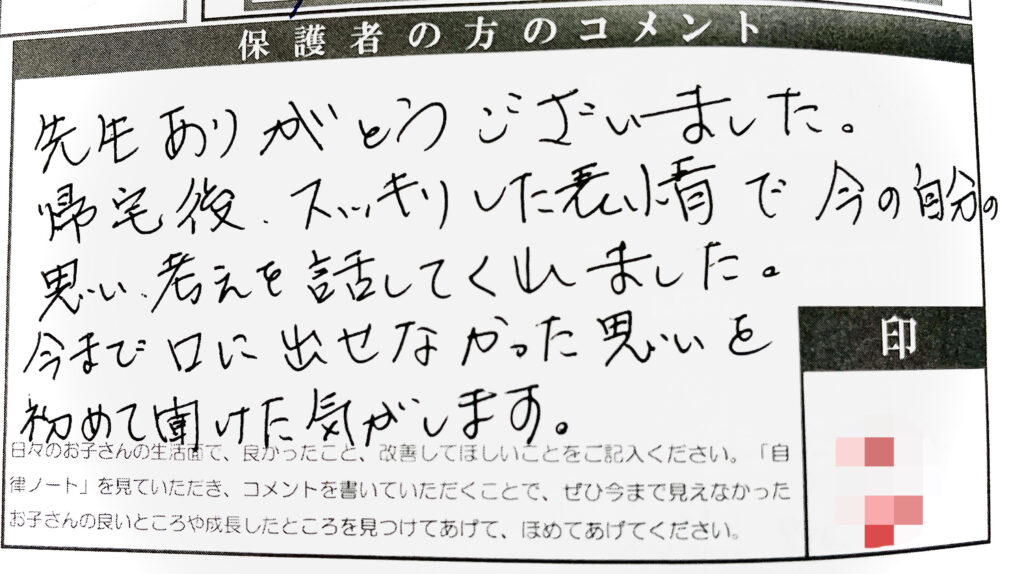 保護者の方のコメント
先生ありがとうございました。
帰宅後、スッキリした表情で今の自分の
思い、考えを話してくれました。
今まで口に出せなかった思いを
初めて聞けた気がします。
印
日々のお子さんの生活面で、良かったこと、改善してほしいことをご記入ください。「自
律ノート」を見ていただき、コメントを書いていただくことで、ぜひ今まで見えなかった
お子さんの良いところや成長したところを見つけてあげて、ほめてあげてください。